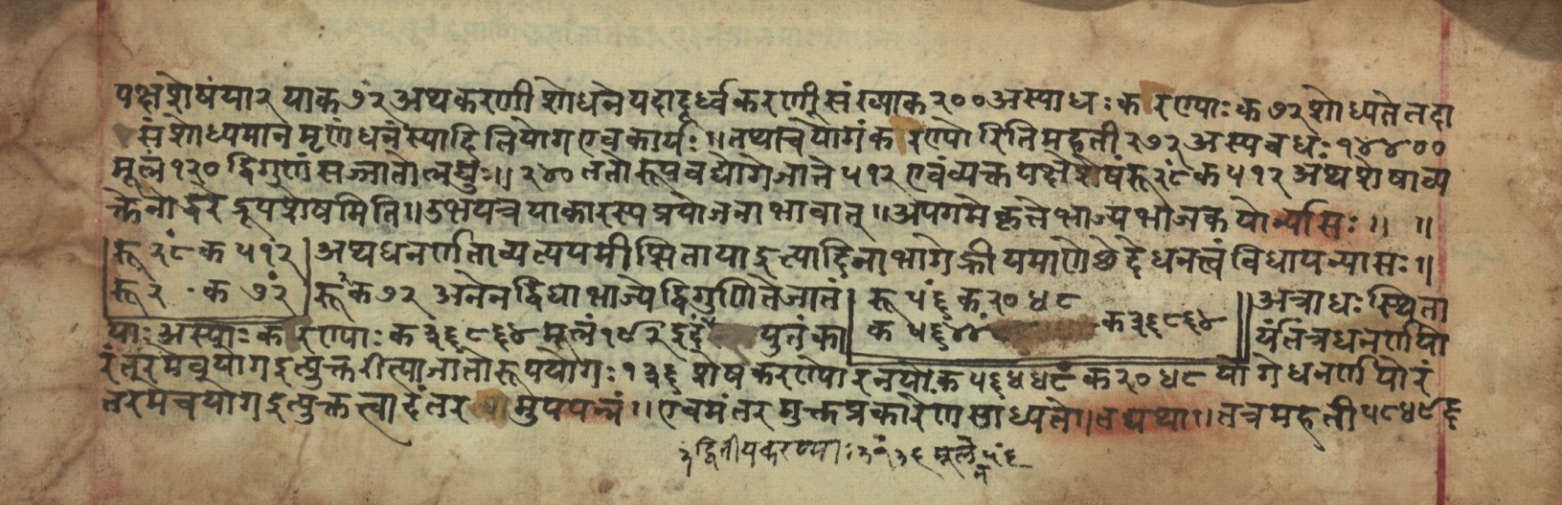 पक्षशेषंयार याक ७ं२ अथकरणीशोधने यदादूर्ध्वकरणीसंख्याक २०० अस्याधः करण्याः क ७२ शोध्यते तदा
संशोध्यमानमृणं धनंस्यादितियोग एवकार्यः ॥ तथाचयोगं करण्योरितिमहती २७२ अस्य वधः १४४००
मूलं १२० द्विगुणं सज्जातोलघुः ॥ २४० ततोरूपवद्योगेजाते ५१२ एवंव्यक्तपक्षेशेषंरू २ं८ क ५१२ अथशेषाव्य
क्तेनोद्धरेद्रूपशेषमिति ॥ उभयत्र याकारस्य प्रयोजनाभावात् ॥ अपगमेकृते भाज्यभाजकयोर्न्यासः ॥ ॥
रू २ं८ क ५१२ अथधनर्णताव्यत्ययमीप्सिताया इत्यादिनाभागेह्रीयमाणे छेदे धनत्वं विधायन्यासः ॥
रू २ क ७ं२ रू २ क ७२ अनेन द्विधाभाज्ये द्विगुणितेजातं रू ५ं६ क २०४८ अत्राधः स्थिता
याः अस्याः करण्याः क ३६८६४ मूलं १९२ इदं युतंका क ५६४४ं क ३६८६४ यंतत्रधनर्णयो
रंतरमेवयोग इत्युक्तरीत्याजातोरूपयोगः १३६ शेषकरण्योरनयोः क ५६४४८ं क २०४८ योगे धनर्णयोरं
तरमेवयोग इत्युक्तत्वादंतर मुपपन्नं ॥ एवमंतरमुक्तप्रकारेणसाध्यते । तद्यथा ॥ तत्रमहती ५८४९६
३ द्वितीयकरण्याः ३१३६ मूलं ५ं६